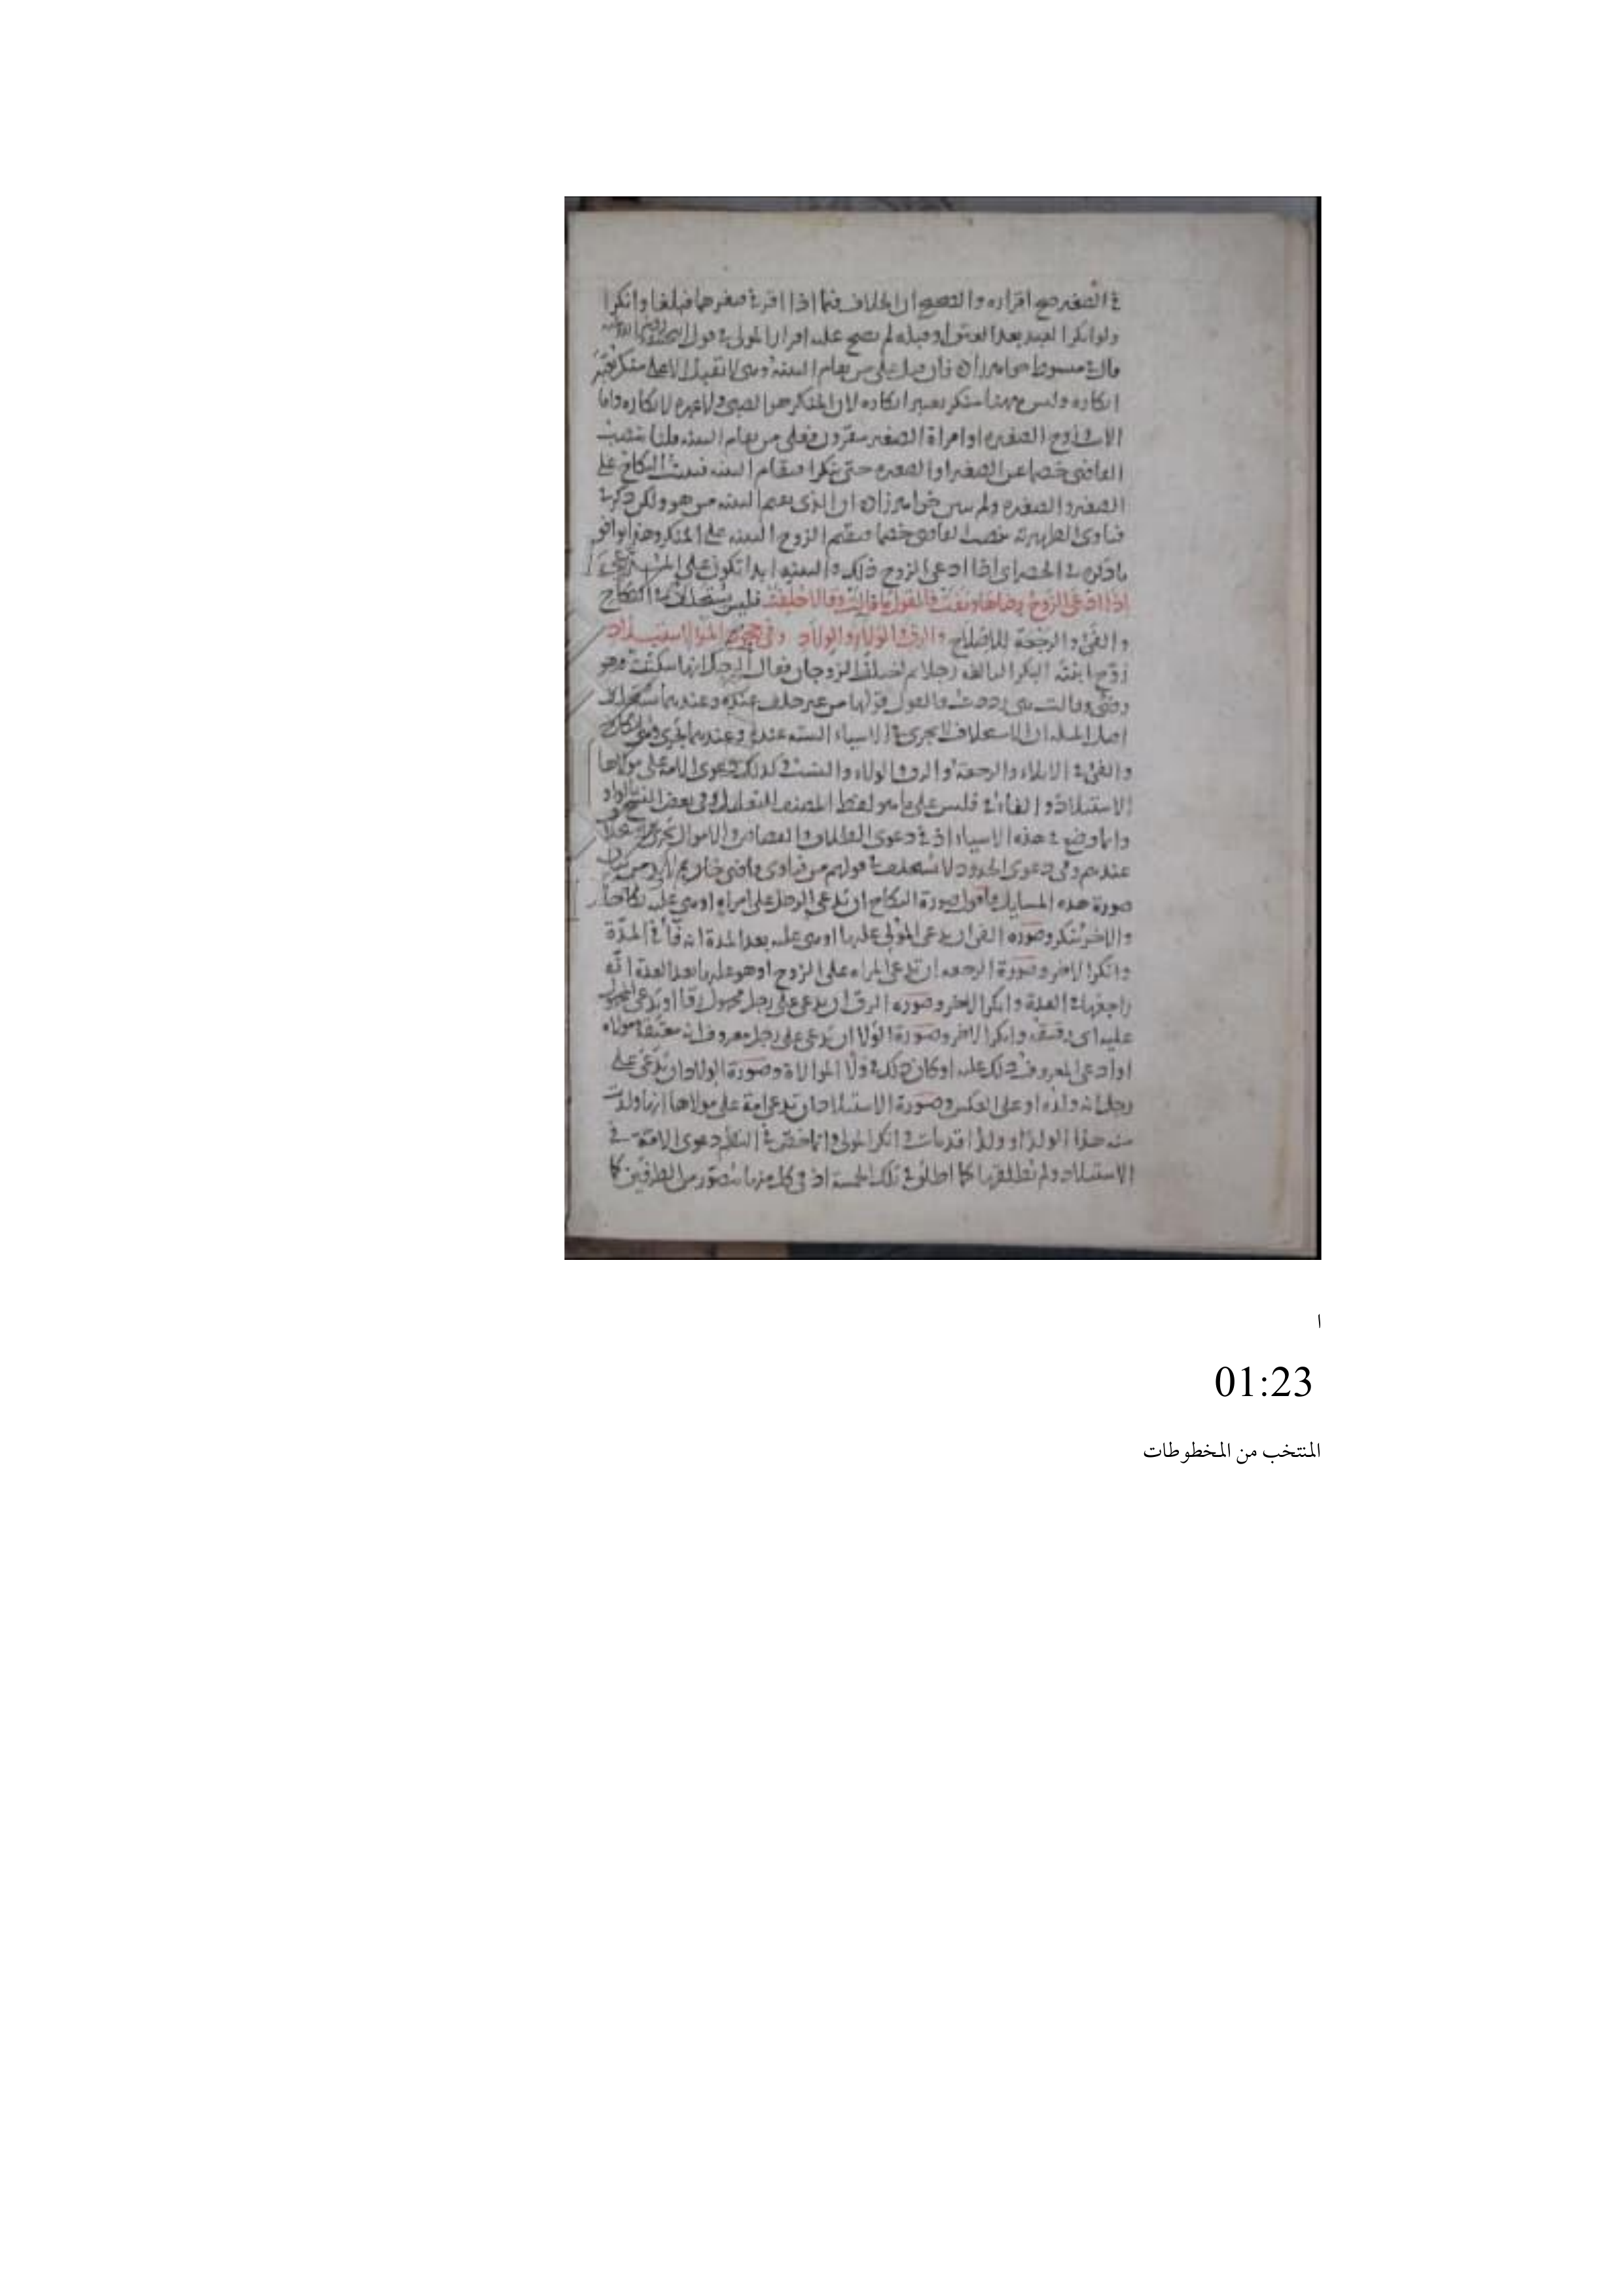 في الصغير صح اقراره والصحيح ان الخلاف فيما اذا اقر في صغرهما فبلغا وانكرا
ولو انكر العبد بعد العتق او قبله لم يصح عليه اقرار المولى في قول
قال في مبسوط فان قيل على من يقام البينة وهي لا تقبل الا على منكر يعتبر
انكاره وليس ههنا منكر يعتبر انكاره لان المنكر هو الصبي ولا عبرة لانكاره واما
الاب وزوج الصغيرة او امراة الصغير مقرون فعلى من يقام البينة قلنا ينصب
القاضي خصما عن الصغير او الصغيرة حتى ينكر فيقام البينة فيثبت النكاح على
الصغير والصغيرة ولم يبين خواهرزاده ان الذي يقيم البينة من هو ولكن ذكر في
فتاوى الظهيرية فينصب القاضي خصما فيقيم الزوج البينة على المنكر وهذا يوافق
ما ذكره في اذا ادعى الزوج ذلك والبينة ابدا تكون على
اذا ادعى الزوج رضاها ونفت فالقول ما قالت وقالا حلفت فليس يستحلف في النكاح
والفيء والرجعة والرق والولاء والولاد
زوج ابنته البكر البالغة رجلا ثم اختلف الزوجان فقال الرجل انها سكتت وهو
رضى وقالت بل رددت فالقول قولها من غير حلف عنده وعندهما تستحلف
اصل المسئلة ان الاستحلاف لا يجري في الاشياء الستة عنده وعندهما يجري وهي النكاح
والفيء في الايلاء والرجعة والرق والولاء والنسب وكذلك دعوى الامة على مولاها
الاستيلاد والفاء في فليس على ما هو لفظ المصنف للتعليل وفي بعض النسخ بالواو
وانما وضع في هذه الاشياء اذ في دعوى الطلاق والقصاص والاموال يجري
عندهم وفي دعوى الحدود لا يستحلف في قولهم من فتاوى قاضي خان
صورة هذه المسايل فاقول صورة النكاح ان يدعي الرجل على امراة او هي عليه نكاحا
والاخر ينكر وصورة الفيء ان يدعي المولي عليها او هي عليه بعد المدة انه فاء في المدة
وانكر الاخر وصورة الرجعة ان تدعي المراة على الزوج او هو عليها بعد العدة انه
راجعها في العدة وانكر الاخر وصورة الرق ان يدعي على رجل مجهول رقا او يدعي المجهول
عليه اي رقيقه وانكر الاخر وصورة الولا ان يدعي على رجل معروف انه معتقه او مولاه
او ادعى المعروف ذلك عليه او كان ذلك في ولا الموالاة وصورة الولاد ان يدعي على
رجل انه ولده او على العكس وصورة الاستيلاد ان تدعي امة على مولاها انها ولدت
منه هذا الولد او ولدا قد مات وانكر المولى وانما خص في النظم دعوى الامة في
الاستيلاد ولم يطلقها كما اطلق في تلك الخمسة اذ في كل منها يتصور من الطرفين كما
ا
01:23
المنتخب من المخطوطات